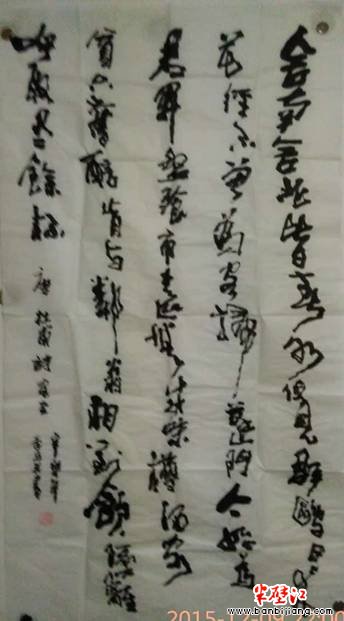 舍南舍北皆春水但見群鷗日日來
花徑不曾緣客掃蓬門今始為
君開盤飧市遠無兼味樽酒家
貧只舊醅肯与鄰翁相對飲隔籬
呼取尽餘杯 唐杜甫詩客至
2015-12-09 22:00
半壁江
www.banbijiang.com